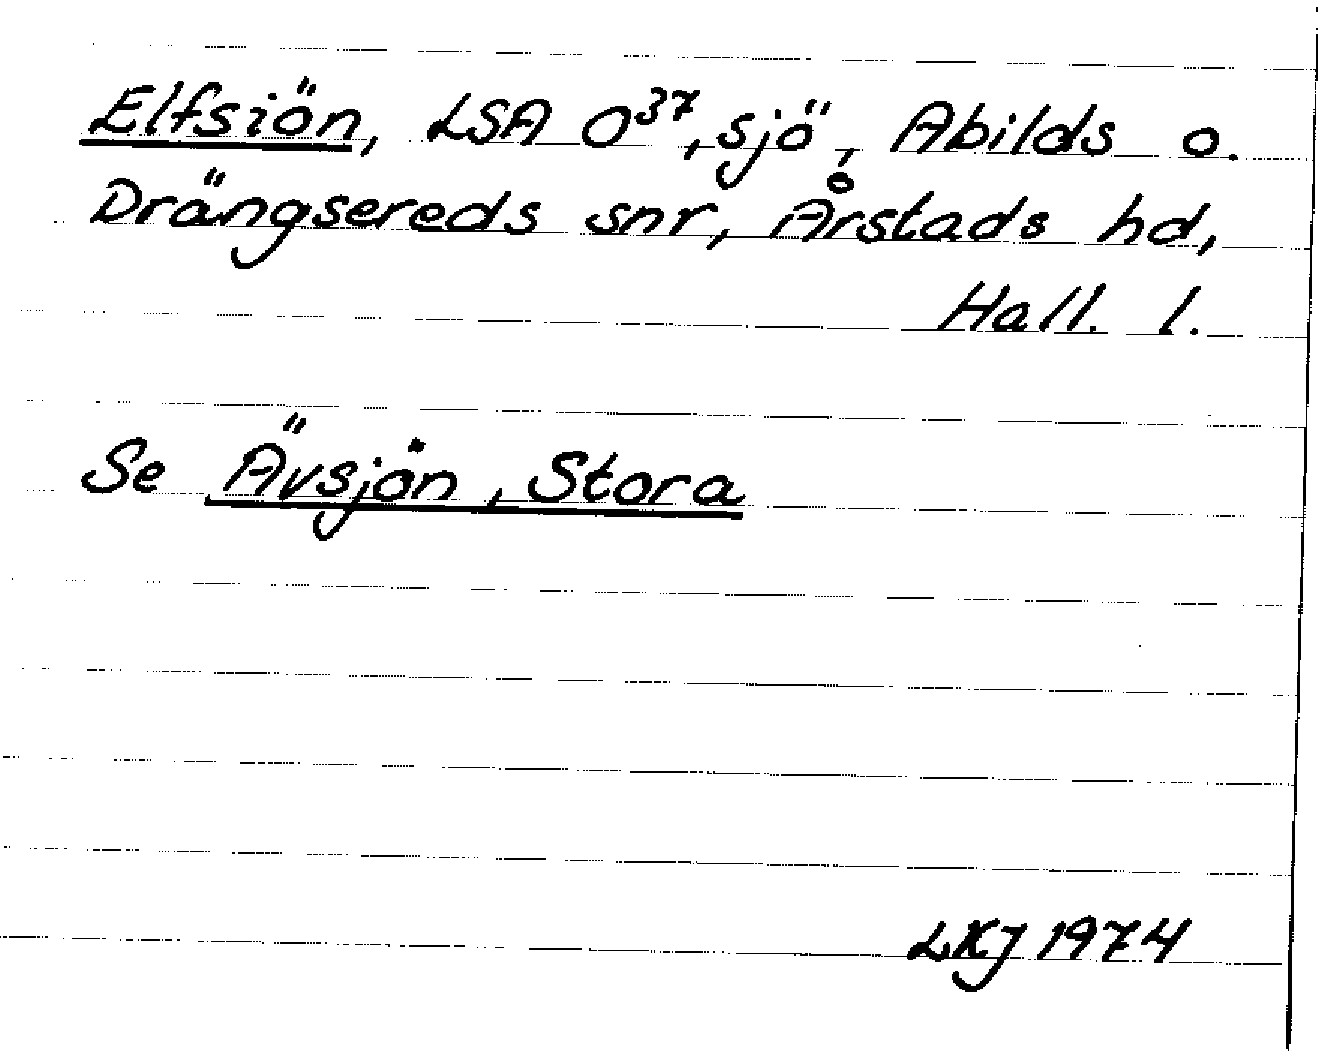 Elfsiön, LSA O³⁷, sjö, Abilds o.
Drängsereds snr, Årstads hd,
Hall. l.
Se Ävsjön, Stora
LKJ 1974